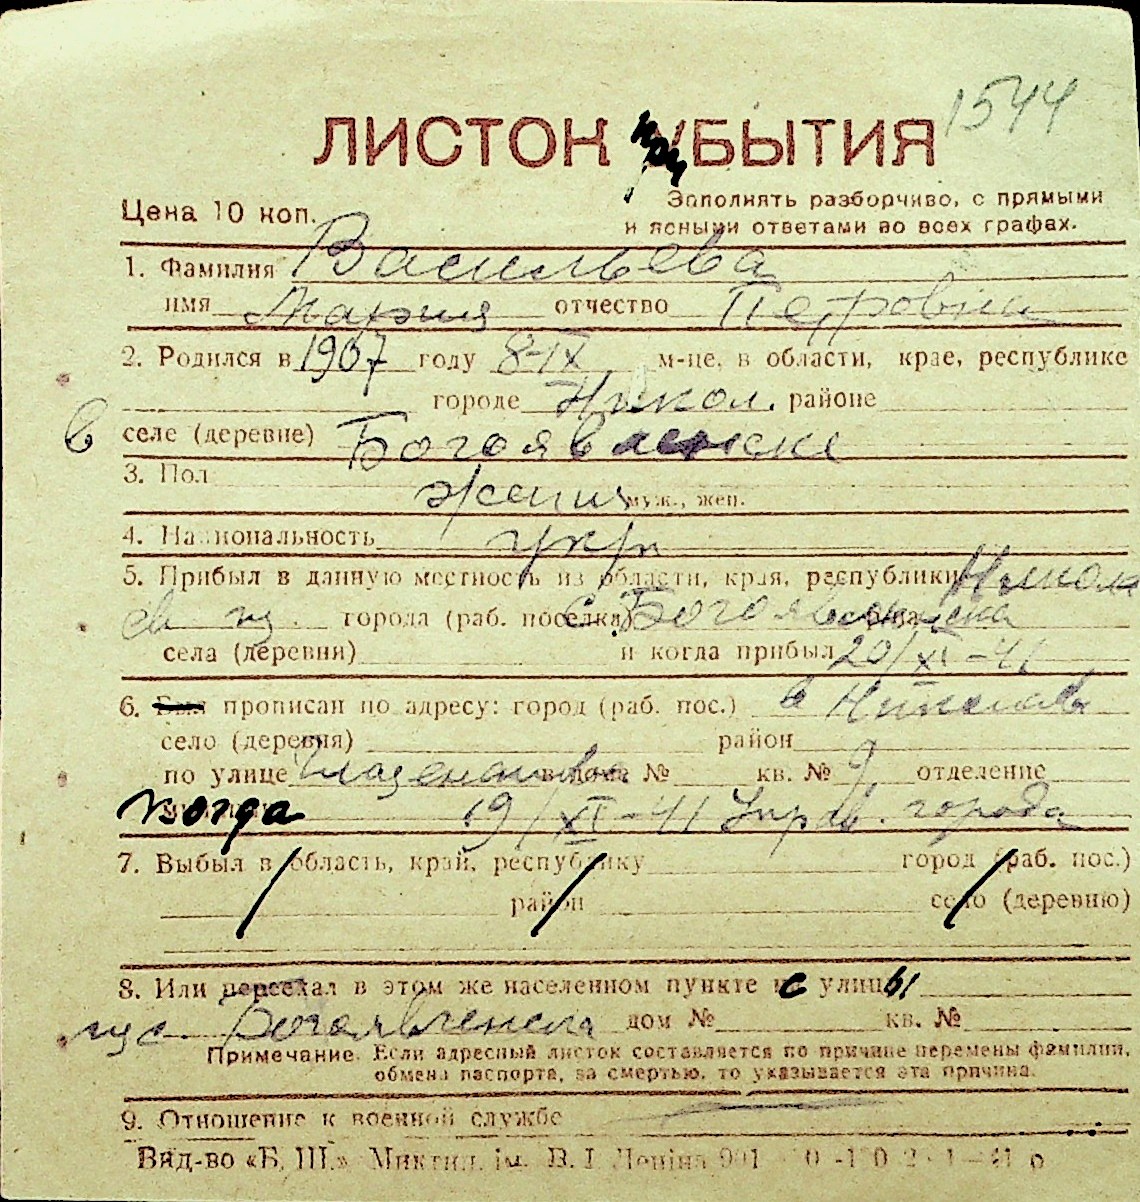 1544
ЛИСТОК при УБЫТИЯ
Цена 10 коп.
Заполнять разборчиво, с прямыми
и ясными ответами во всех графах.
1. Фамилия Васильева
имя Мария отчество Петровна
2. Родился в 1907 году 8-IX м-це, в области, крае, республике
городе Никол. районе
в селе (деревне) Богоявленске
3. Пол
муж., жен.
4. Национальность укр
5. Прибыл в данную местность из области, края, республики Никол
города (раб. поселка) с Богоявленска
села (деревни) и когда прибыл 20/XI-41
6. Был прописан по адресу: город (раб. пос.) в Николаев
село (деревня) район
по улице в доме № кв. № 9 отделение
когда 19/XI-41 Управ. города
7. Выбыл в область, край, республику город (раб. пос.)
район село (деревню)
8. Или переехал в этом же населенном пункте с улицы
Богоявленска дом № кв. №
Примечание. Если адресный листок составляется по причине перемены фамилии,
обмена паспорта, за смертью, то указывается эта причина.
9. Отношение к военной службе
Вид-во «Б. Ш.» Микгил. ім. В. І Леніна